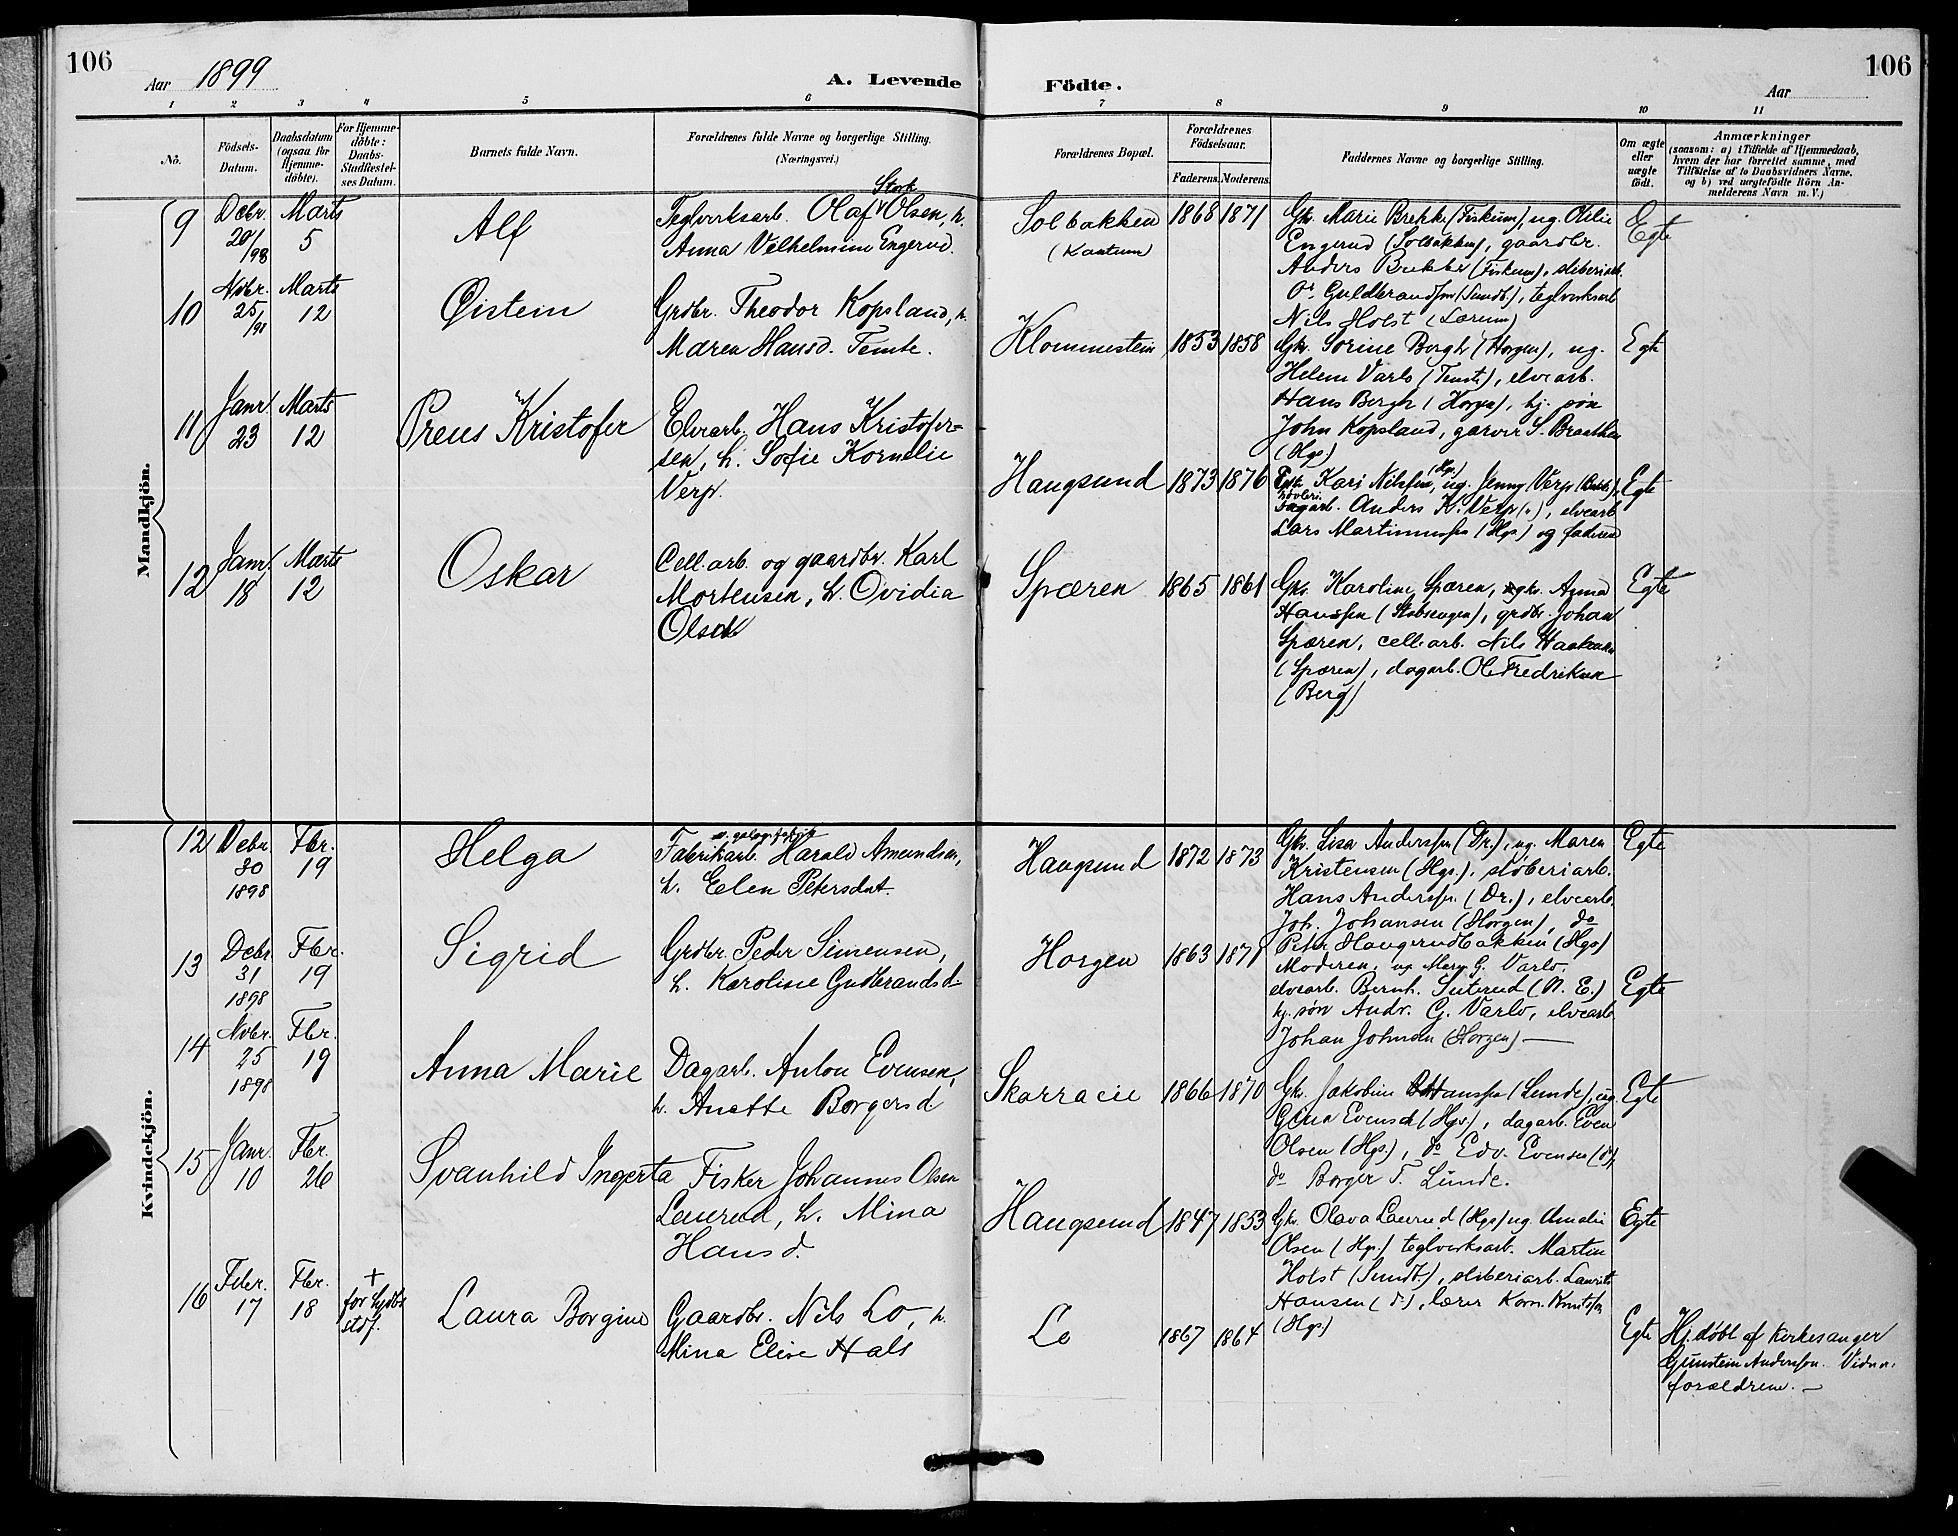 106
Aar 1899
A. Levende
Födte.
Aar
106
1 2 3 4 5 6 7 8 9 10 11
No.
Födsels-
Datum.
Daabsdatum
(ogsaa for
Hjemme-
döbte).
For Hjemme-
döbte:
Daabs-
Stadfæstel-
ses Datum.
Barnets fulde Navn.
Forældrenes fulde Navne og borgerlige Stilling.
(Næringsvei.)
Forældrenes Bopæl.
Forældrenes
Födselsaar.
Faderens. Moderens.
Faddernes Navne og borgerlige Stilling.
Om ægte
eller
uægte
födt.
Anmærkninger
(saasom: a) i Tilfælde af Hjemmedaab,
hvem der har forrettet samme, med
Tilföielse af to Daabsvidners Navne,
og b) ved uægtefödte Börn An-
melderens Navn m. V.)
Mandkjön.
9
Debr.
20/
/98
Marts
5
Alf
Stork
Teglverksarb. Olaf Olsen, h.
Anna Velhelmine Engerud.
Solbakken
(Kantum)
1868 1871
Gk. Marie Brekke (Fiskum), ug. Olilie
Engerud (Solbakken), gaardbr.
Anders Brekke (Fiskum), sliberiarb.
O. Guldbrandsen (Sundt.), teglverksarb
Nils Holst (Lærum)
Egte
10
Nvbr.
25/
/98
Marts
12
Øistein
Grdbr. Theodor Kopsland, h.
Maren Hansd. Temte.
Klommestein
1853 1858
Gk. Sorine Bergh (Horgen), ug.
Helene Varlo (Temte), elvearb.
Hans Bergh (Horgen), hj. søn
John Kopsland, garver S. Braathen
(Hgs.)
Egte
11
Janr.
23
Marts
12
Preus Kristofer
Elvearb. Hans Kristofer=
sen, h. Sofie Kornelie
Verp.
Haugsund
1873 1876
Kari Nilsen (Hgs.), ug. Jenny Verp
Anders K. Verp, elvearb
Lars Martinussen (Hgs) og faderen
Egte
12
Janr.
18
Marts
12
Oskar
Cell.arb. og gaardbr. Karl
Mortensen, h. Ovidia
Olsd
Spæren
1865 1861
Gk. Karoline Spæren, gk. Anna
Hanssen (Stobsengen), grdbr. Johan
Spæren, cell.arb. Nils Haakensen
(Spæren), dagarb. Ole Fredriksen
(Berg)
Egte
Kvindekjön.
12
Debr.
30
1898
Fbr.
19
Helga
Fabrikarb. Harald Amundsen,
h. Elen Petersdat.
Haugsund
1872 1873
Gk. Lisa Anderssen (Dr.), ug. Maren
Kristensen (Hgs.), sliberiarb.
Hans Anderssen (Dr.), elvearb.
Joh. Johansen (Horgen), do
Peter Haugerudbakken (Hgs)
Egte
13
Debr.
31
1898
Fbr.
19
Sigrid
Grdbr. Peder Simensen,
h. Karoline Gudbrandsd.
Horgen
1863 1871
Moderen, ug. Mary G. Varlo,
elvearb. Bernh. Suterud (N. E.)
hj. søn Andr. G. Varlo, elvearb.
Johan Johnsen (Horgen)
Egte
14
Nvbr.
25
1898
Fbr.
19
Anna Marie
Dagarb. Anton Evensen,
h. Anette Borgersd
Skarracie
1866 1870
Gk. Jakobine Hanssen (Lunde), ug.
Gina Evensen (Hgs), dagarb. Even
Olsen (Hgs.), do Edv. Evensen (do),
do Borger T. Lunde.
Egte
15
Janr.
10
Fbr.
26
Svanhild Ingerta
Fisker Johannes Olsen
Laurud, h. Mina
Hansd.
Haugsund
1847 1853
Gk. Olava Laurud (Hgs) ug. Amalie
Olsen (Hgs.) teglverksarb. Martin
Holst (Sundt.), sliberiarb. Laurits
Hansen (do), lærer Korn. Knutsen
(Hgs)
Egte
16
Febr.
17
Fbr.
18
+
før hjdbs
stdf.
Laura Borgine
Gaardbr. Nils Lo, h.
Mina Elise Hals
Lo
1867 1864
Egte
Hj.døbt af Kirkesanger
Gunstein Anderssen. Vidner:
forældrene.